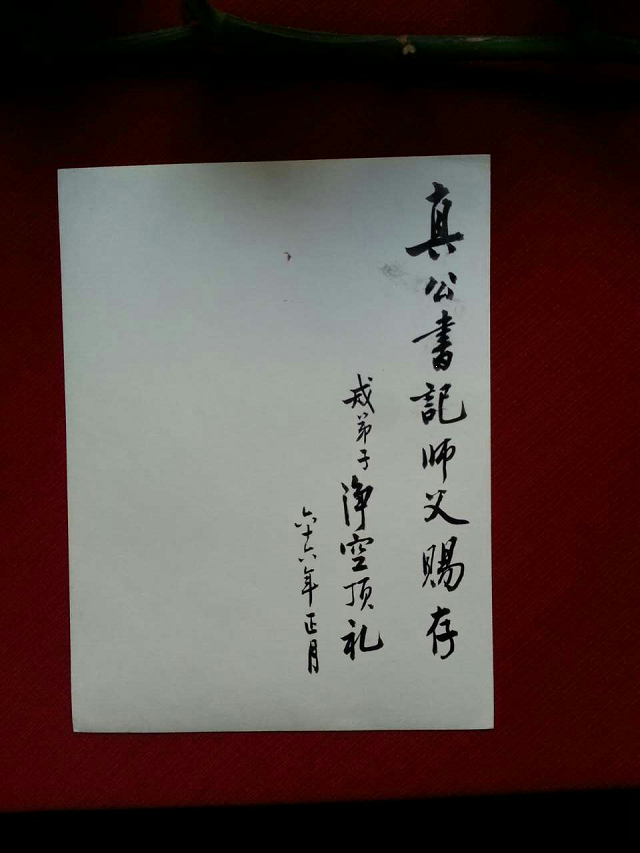 真公書記师父賜存
戒弟子淨空顶礼
六十六年正月